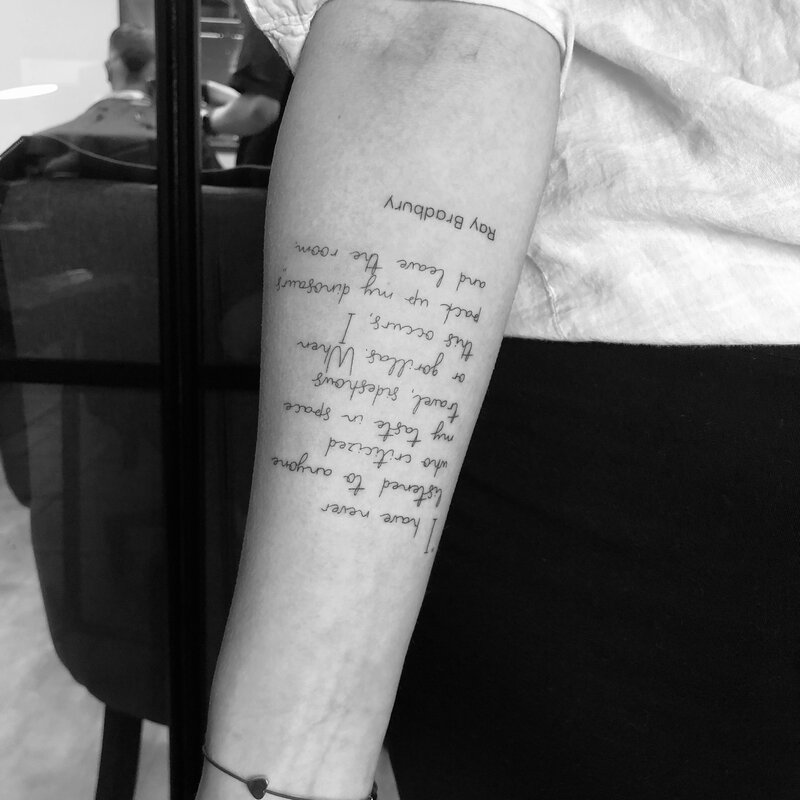 "I have never
listened to anyone
who criticized
my taste in space
travel, sideshows
or gorillas. When
this occurs, I
pack up my dinosaurs
and leave the room."
Ray Bradbury